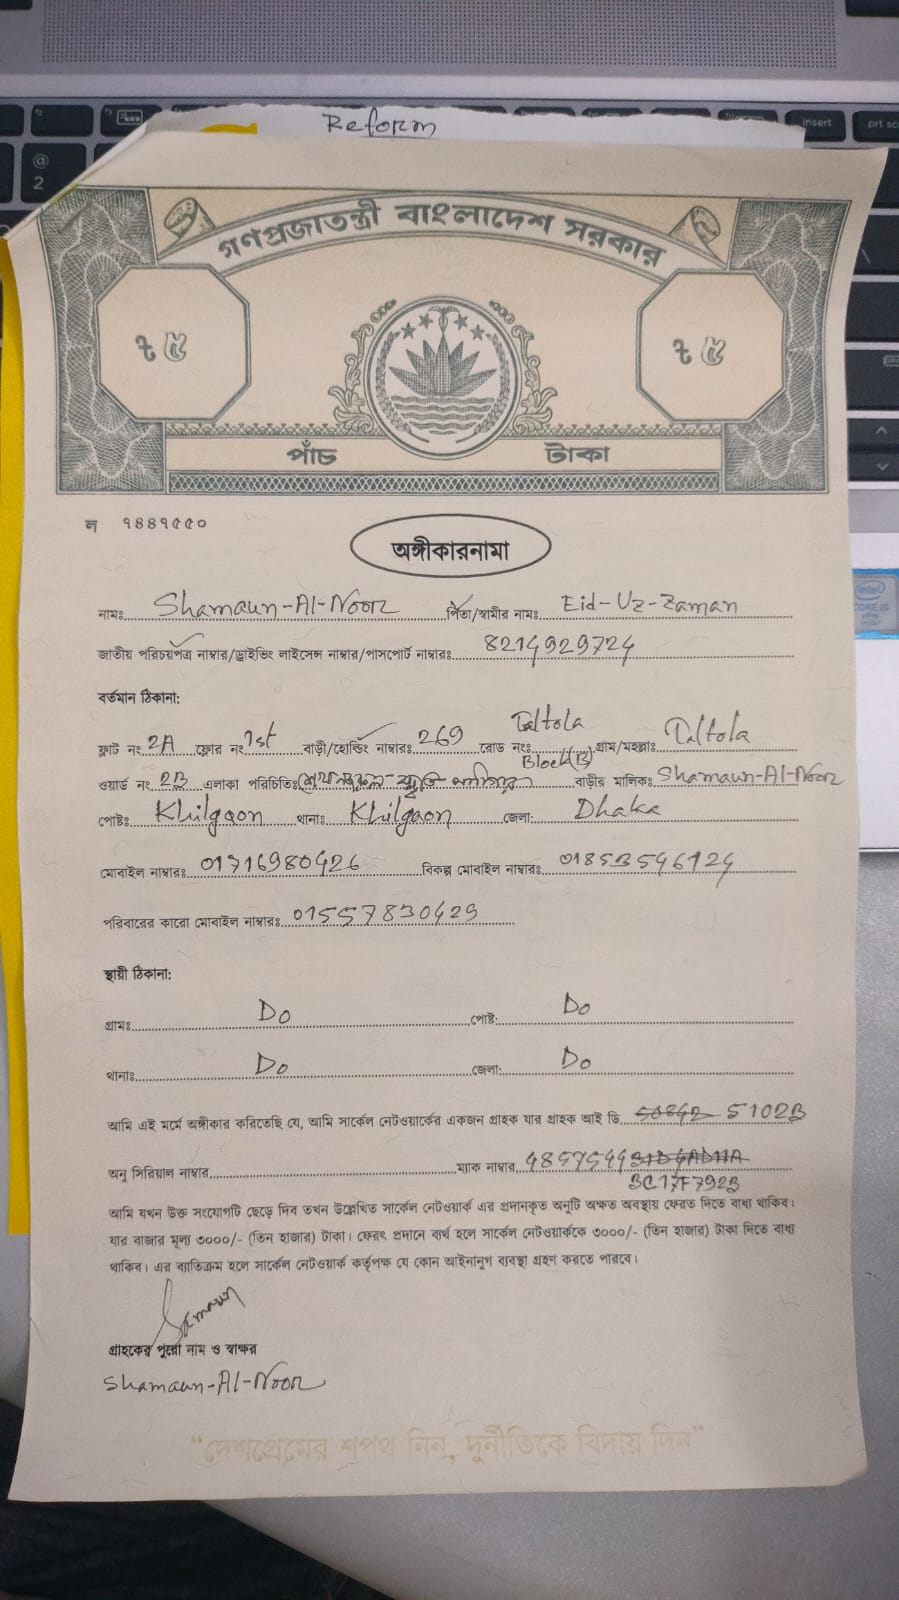 Reform
গণপ্রজাতন্ত্রী বাংলাদেশ সরকার
৳ ৫ ৳ ৫
পাঁচ টাকা
ল ৭৪৪৭৫৫০
অঙ্গীকারনামা
নামঃ Shamaun-Al-Noor পিতা/স্বামীর নামঃ Eid-Uz-Zaman
জাতীয় পরিচয়পত্র নাম্বার/ড্রাইভিং লাইসেন্স নাম্বার/পাসপোর্ট নাম্বারঃ 8214929724
বর্তমান ঠিকানা:
ফ্লাট নং 2A ফ্লোর নং 1st বাড়ী/হোল্ডিং নাম্বারঃ 269 রোড নংঃ Taltola Block(B) গ্রাম/মহল্লাঃ Taltola
ওয়ার্ড নং 2B এলাকা পরিচিতিঃ বাড়ীর মালিকঃ Shamaun-Al-Noor
পোষ্টঃ Khilgaon থানাঃ Khilgaon জেলা: Dhaka
মোবাইল নাম্বারঃ 01716980426 বিকল্প মোবাইল নাম্বারঃ
পরিবারের কারো মোবাইল নাম্বারঃ 01557830429
স্থায়ী ঠিকানা:
গ্রামঃ Do পোষ্ট: Do
থানাঃ Do জেলা: Do
আমি এই মর্মে অঙ্গীকার করিতেছি যে, আমি সার্কেল নেটওয়ার্কের একজন গ্রাহক যার গ্রাহক আই ডি 5102B
অনু সিরিয়াল নাম্বার ম্যাক নাম্বার 48575449
3C17F792B
আমি যখন উক্ত সংযোগটি ছেড়ে দিব তখন উল্লেখিত সার্কেল নেটওয়ার্ক এর প্রদানকৃত অনুটি অক্ষত অবস্থায় ফেরত দিতে বাধ্য থাকিব।
যার বাজার মূল্য ৩০০০/- (তিন হাজার) টাকা। ফেরৎ প্রদানে ব্যর্থ হলে সার্কেল নেটওয়ার্ককে ৩০০০/- (তিন হাজার) টাকা দিতে বাধ্য
থাকিব। এর ব্যাতিক্রম হলে সার্কেল নেটওয়ার্ক কর্তৃপক্ষ যে কোন আইনানুগ ব্যবস্থা গ্রহণ করতে পারবে।
গ্রাহকের পুরো নাম ও স্বাক্ষর
Shamaun-Al-Noor
"দেশপ্রেমের শপথ নিন, দুর্নীতিকে বিদায় দিন"